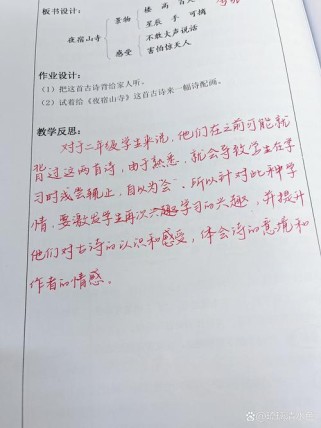 板书设计:
景物 楼 高 百
星辰 手 可摘
夜宿山寺
不敢大声说话
感受
害怕惊天人
作业设计:
(1)把这首古诗背给家人听。
(2)试着给《夜宿山寺》这首古诗来一幅诗配画。
教学反思:
对于二年级学生来说,他们在之前可能就
背过这两首诗,由于熟悉,就会导致学生在学
习时或尝辄止,自以为会。所以针对此种学
情,要激发学生再次兴趣学习的兴趣,并提升
他们对古诗的认识和感受,体会诗的意境和
作者的情感。